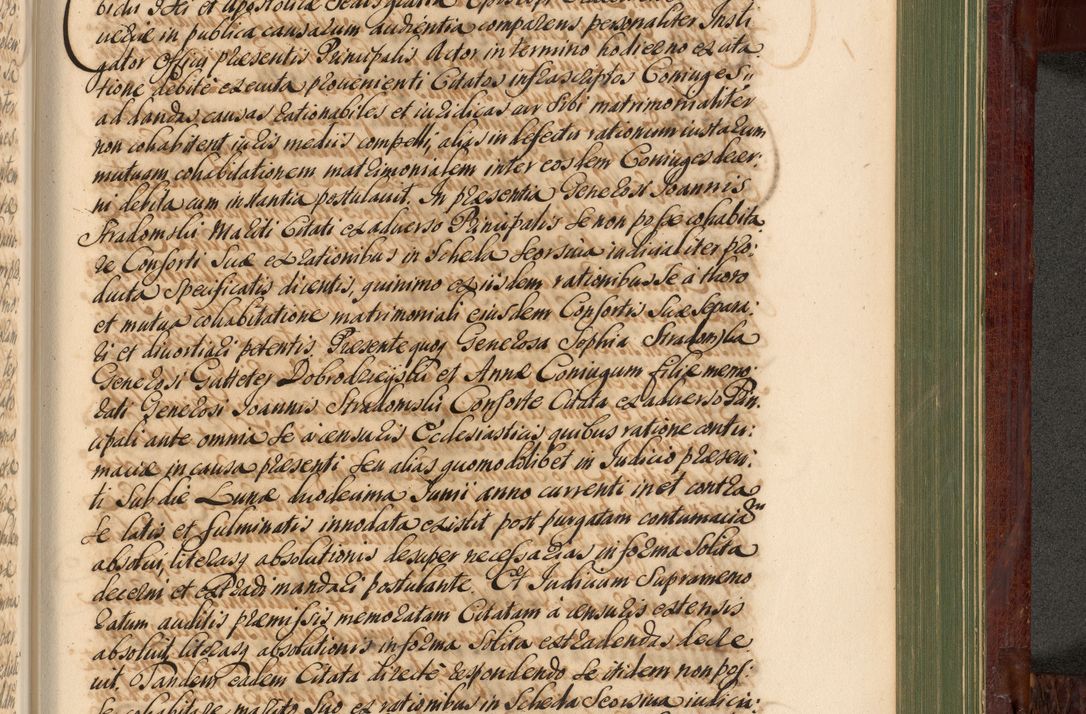 bidu Dei et Apostolicæ Sedis gratia Episcopi
veriæ in publica causarum audientia comparens personaliter Insti
gator Officij præsentis Principalis Actor in termino hodierno ex cita
tione debite executa provenienti Citatos infrascriptos Coniuges
ad dandas causas rationabiles et iuridicas cur sibi matrimonialiter
non cohabitent iuris mediis compelli, alias in defectu rationum iustarum
mutuam cohabitationem matrimonialem inter eosdem Coniuges decer:
ni debita cum instantia postulavit. In præsentia Generosi Ioannis
Stradomski Mariti Citati ex adverso Principalis se non posse cohabita
re Consorti suæ ex rationibus in Scheda seorsiva iudicialiter pro:
ducta specificatis dicentis, quinimo ex iisdem rationibus se a thoro
et mutua cohabitatione matrimoniali eiusdem Consortis suæ separa:
ri et divortiari petentis. Præsente quoq Generosa Sophia Stradomska
Generosi Galteter Dobrodzieyski et Annæ Coniugum filiæ memo:
rati Generosi Ioannis Stradomski Consorte Citata ex adverso Prin:
cipali ante omnia se a censuris Ecclesiasticis quibus ratione contu:
maciæ in causa præsenti seu alias quomodolibet in Iudicio præsen:
ti sub die Lunæ duodecima Iunii anno currenti in et contra
se latis et fulminatis innodata existit post purgatam contumaciam
absolui, literasq absolutionis desuper necessarias in forma solita
decerni et extradi mandari postulante. Et Iudicium supramemo
ratum auditis præmissis memoratam Citatam a censuris extensis
absolvit literasq absolutionis in forma solita extradendas decre
vit. Tandem eadem Citata directe respondendo se itidem non pos:
se cohabitare marito suo ex rationibus in Scheda seorsiva iudicia: